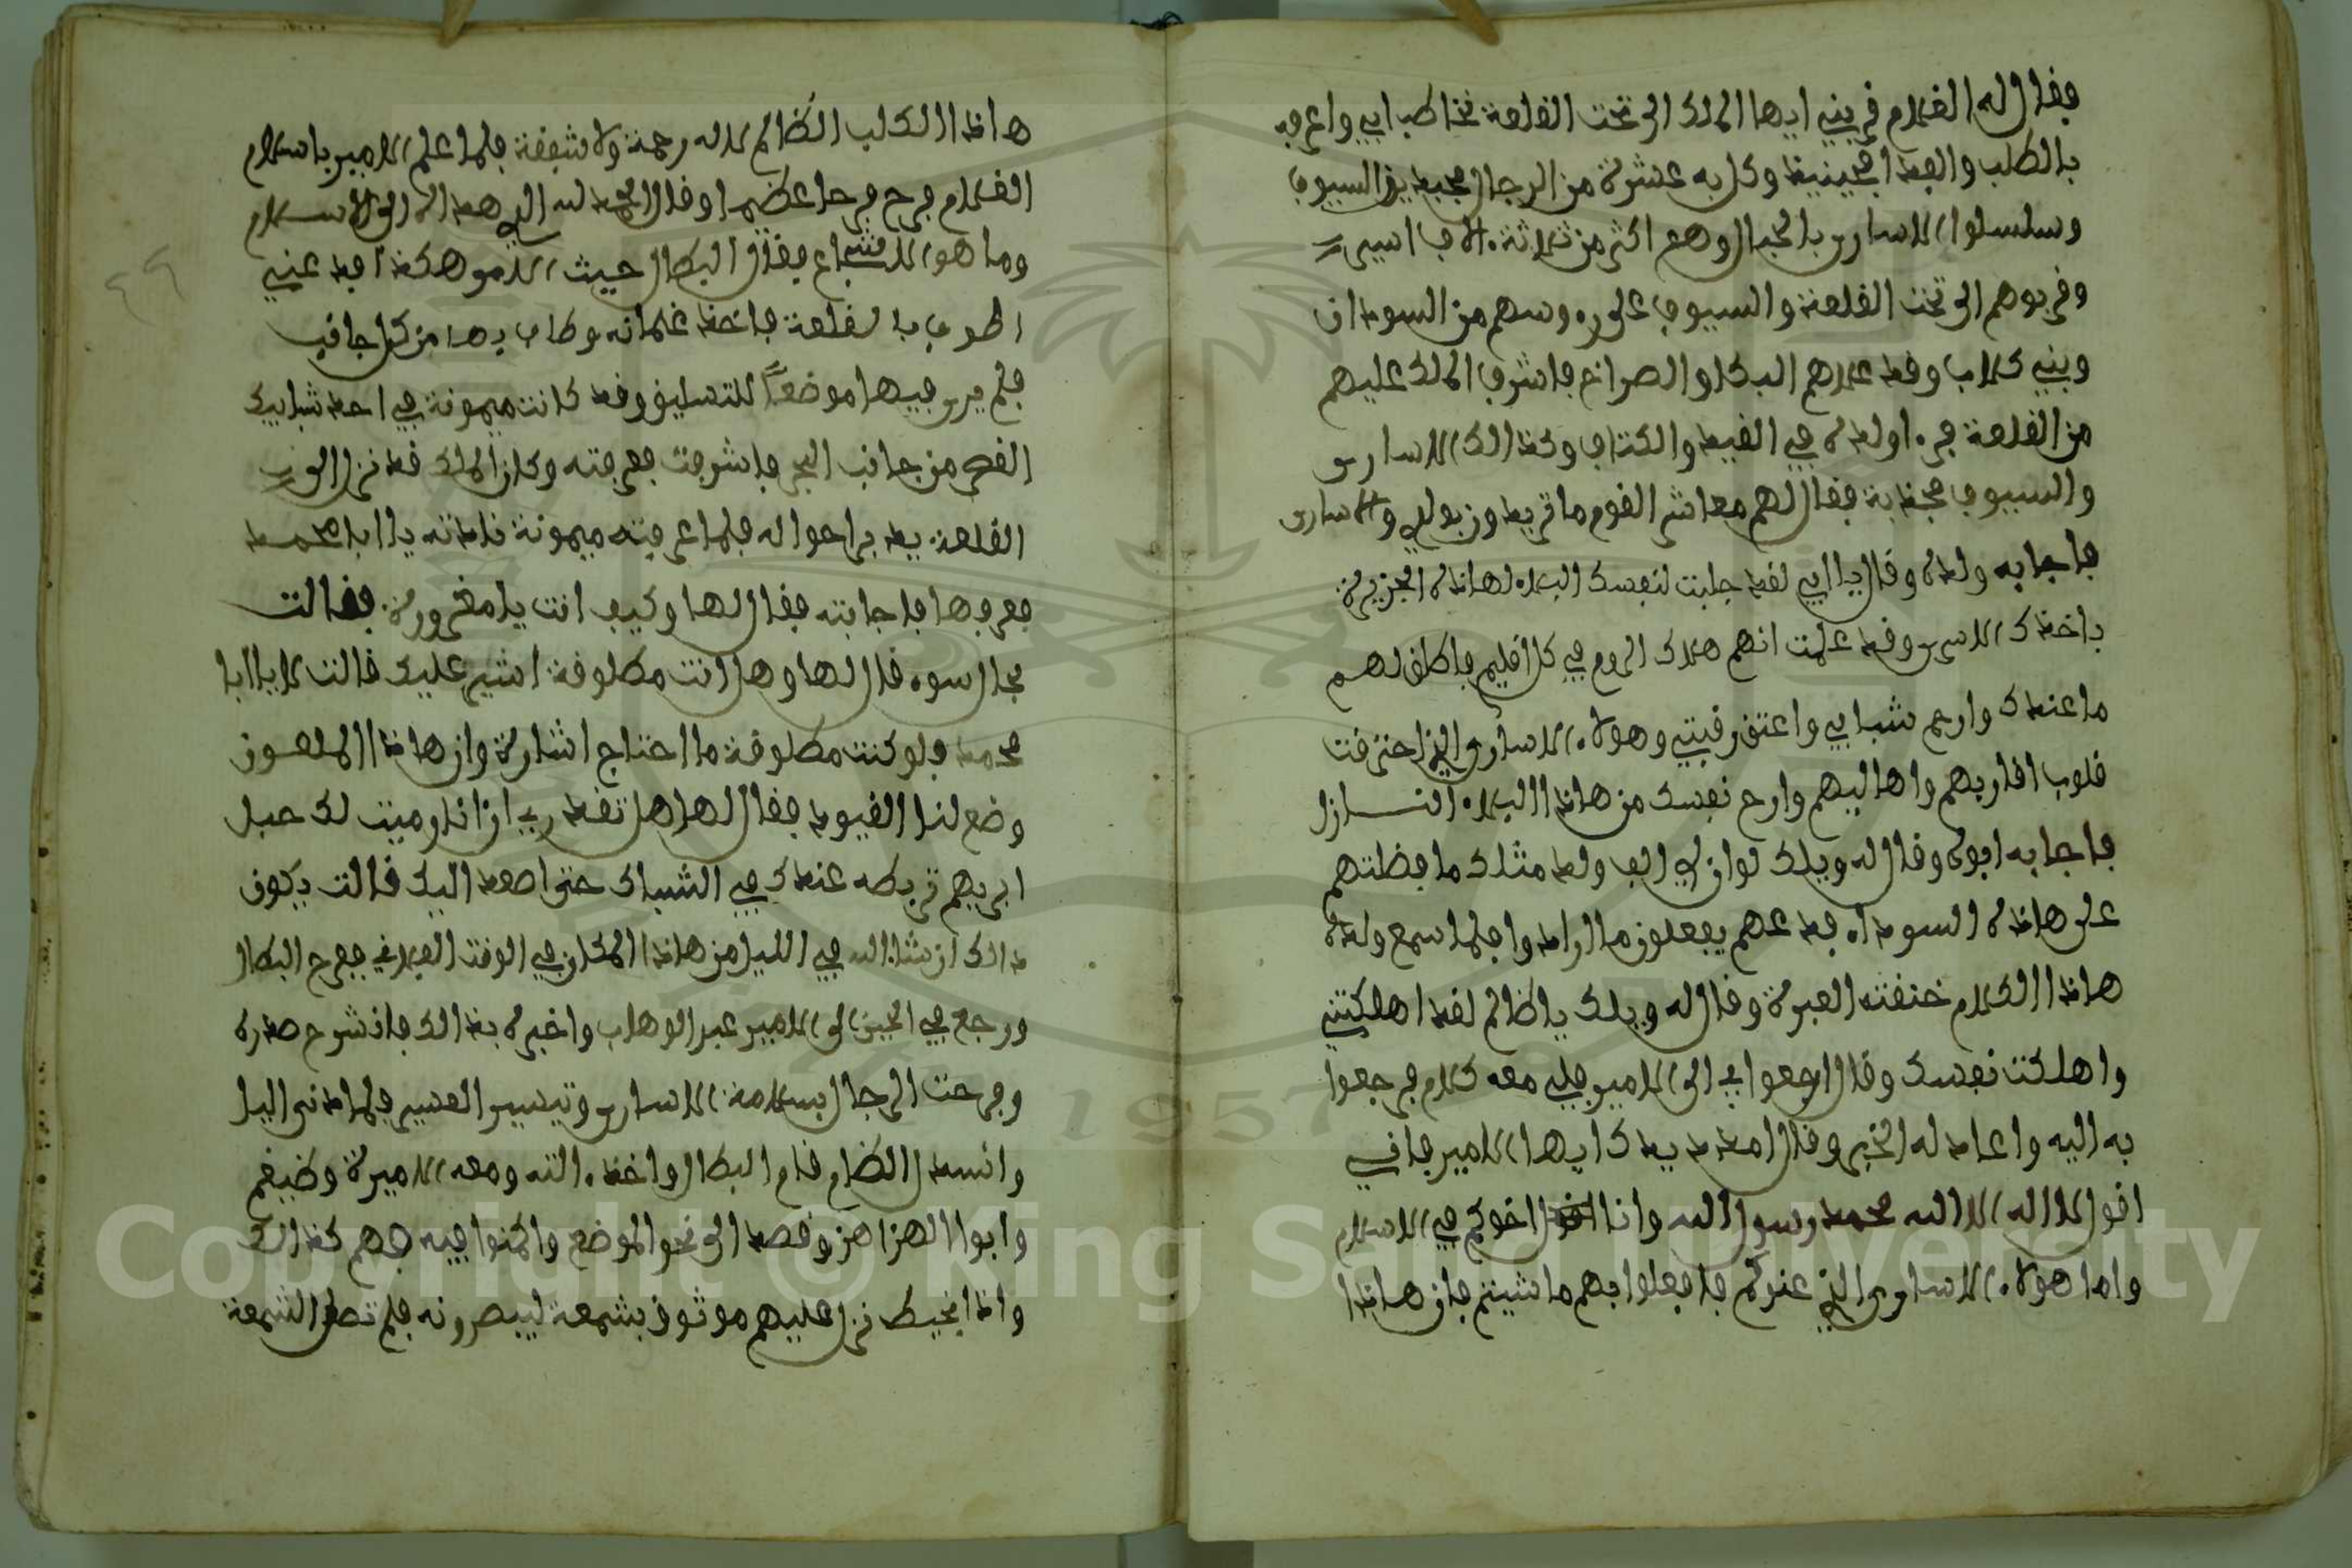 فقال له الغلام قربني ايها الملك الى تحت القلعة نخاطب ابي واعرفه
بالطلب والفدا فحينيذ وكل به عشرة من الرجال مجبذين السيوف
وسلسلوا الاسارى بالحبال وهم اكثر من ثلاثة الاف اسير
وقربوهم الى تحت القلعة والسيوف على رءوسهم من السودان
وبني كلاب وقد علاهم البكا والصراخ فاشرف الملك عليهم
من القلعة فرءا ولده في القيد والكتاف وكذالك الاسارى
والسيوف مجذبة فقال لهم معاشر القوم ما تريدون بولدي والاسارى
فاجابه ولده وقال يا ابي لقد جلبت لنفسك البلاء لهاذه الجزيرة
باخذك الاسرى وقد علمت انهم هلاك الروم في كل اقليم فاطلق لهم
ما عندك وارحم شبابي واعتق رقبتي وهولاء الاسارى الذي احترقت
قلوب اقاربهم واهاليهم وارح نفسك من هاذا البلاء النازل
فاجابه ابوه وقال له ويلك لو ان لي الف ولد مثلك ما فظتهم
على هاذه السوداء فدعهم يفعلون ما ارادوا فلما سمع ولده
هاذا الكلام خنقته العبرة وقال له ويلك يا ظالم لقد اهلكتني
واهلكت نفسك وقال ارجعوا بي الى الامير فلي معه كلام فرجعوا
به اليه واعاد له الخبر وقال امدد يدك ايها الامير فاني
اقول لا اله الا الله محمد رسول الله وانا اخوكم في الاسلام
واما هولاء الاسارى الذي عندكم فافعلوا بهم ما شيتم فان هاذا
هاذا الكلب الظالم لا له رحمة ولا شفقة فلما علم الامير باسلام
الغلام فرح فرحا عظيما وقال الحمد لله الذي هداك الى الاسلام
وما هو الا شجاع فقال البطال حيث الامر هكذا فدعني
اطوف بالقلعة فاخذ غلمانه وطاف بها من كل جانب
فلم يرى فيها موضعا للتسليق وقد كانت ميمونة في احد شبابيك
القصر من جانب البحر فاشرفت فعرفته وكان الملك قد نزل الى
القلعة يدبر احواله فلما عرفته ميمونة نادته يا ابا محمد
فعرفها فاجابته فقال لها وكيف انت يا مغرورة فقالت
بحال سوء قال لها وهل انت مطلوقة اشير عليك قالت لا يا ابا
محمد ولو كنت مطلوقة ما احتاج اشارة وان هاذا الملعون
وضع لنا القيود فقال لها هل تقدري ان انا رميت لك حبل
ابريهم تربطه عندك في الشباك حتى اصعد اليك قالت يكون
ذالك ان شا الله في الليل من هاذا المكان في الوقت الفلاني ففرح البطال
ورجع في الحين الى الامير عبد الوهاب واخبره بذالك فانشرح صدره
وفرحت الرجال بسلامة الاسارى وتيسير العسير فلما دنى اليل
وانسدل الظلام قام البطال واخذ ءالته ومعه الاميرة وضيغم
وابوا الهزاهز وقصد الى نحو الموضع واكمنوا فيه فهم كذالك
واذا بخيط نزل عليهم موثوق بشمعة ليبصرونه فلم تصل الشمعة